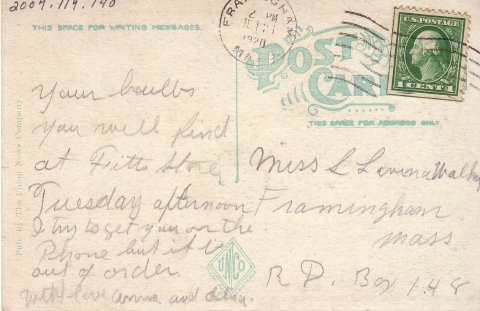 2009.119.140
THIS SPACE FOR WRITING MESSAGES.
FRAMINGHAM
2 PM
1920
MA
U.S. POSTAGE
1 CENT 1
POST CARD
THIS SPACE FOR ADDRESS ONLY.
Your boulbs
you will find
at Fitts Store
Tuesday afternoon
I try to get you on the
Phone but it is
out of order.
with love Anna and
Miss L Lavina
Framingham
Mass
R D. Box 148
Pub. by The Union News Company
UNCO